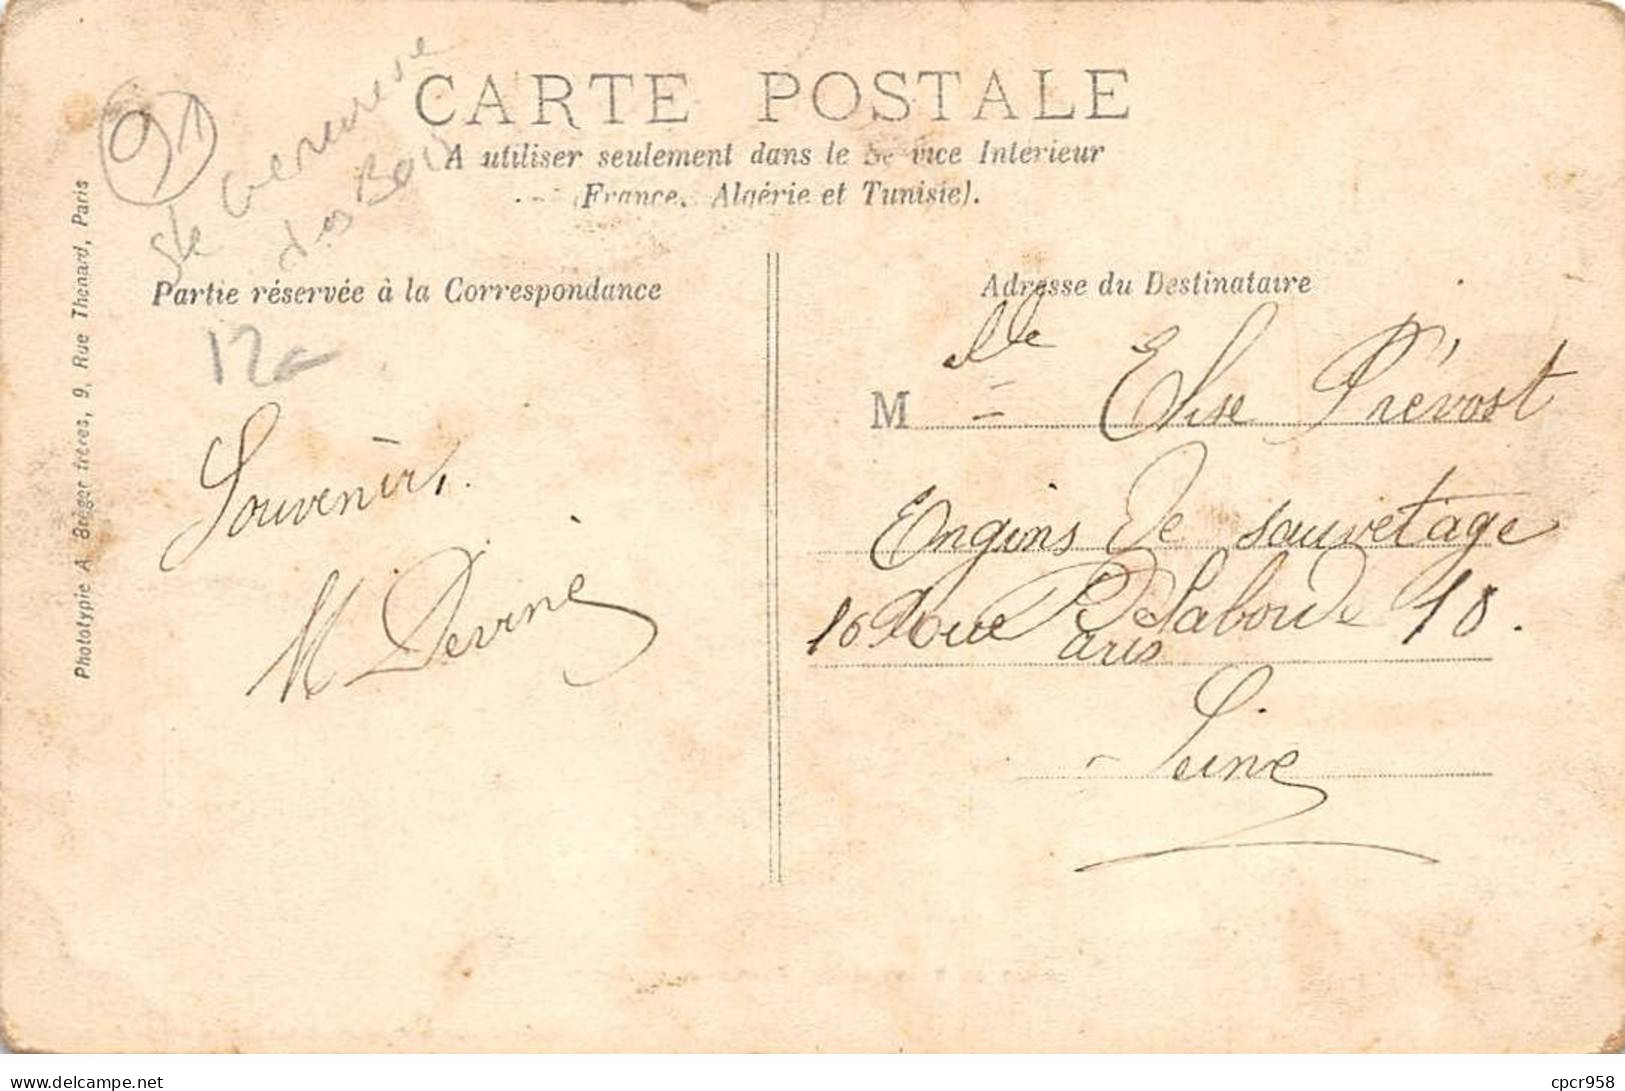 91
Ste Genevieve
des Bois
CARTE POSTALE
A utiliser seulement dans le Service Intérieur
(France, Algérie et Tunisie).
Partie réservée à la Correspondance
Adresse du Destinataire
Phototypie A. Breger frères, 9, Rue Thenard, Paris
12
Souvenirs.
M Devine
M lle Elise Prévost
Engins de sauvetage
16 Rue Delaborde 18.
Paris
Seine
delcampe.net
cpcr958